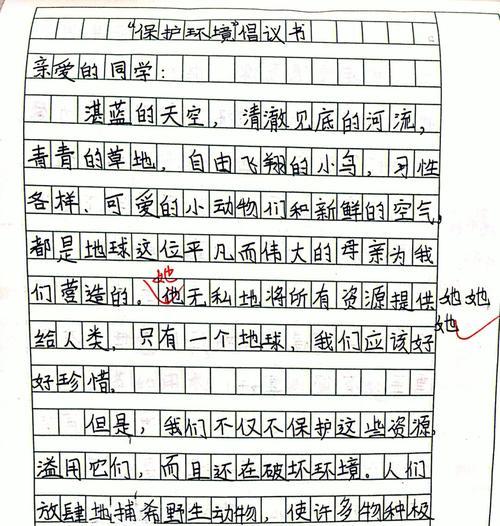 “保护环境”倡议书
亲爱的同学：
湛蓝的天空，清澈见底的河流，
青青的草地，自由飞翔的小鸟，习性
各样、可爱的小动物们和新鲜的空气，
都是地球这位平凡而伟大的母亲为我
她
们营造的。他无私地将所有资源提供 她她
她
给人类，只有一个地球，我们应该好
好珍惜。
但是，我们不仅不保护这些资源，
滥用它们，而且还在破坏环境。人们
放肆地捕希野生动物，使许多物种极